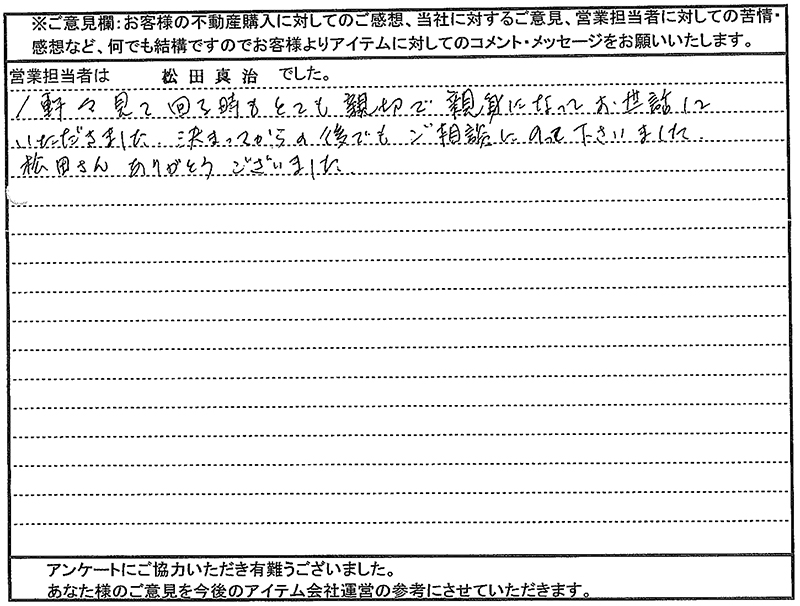 ※ご意見欄:お客様の不動産購入に対してのご感想、当社に対するご意見、営業担当者に対しての苦情・
感想など、何でも結構ですのでお客様よりアイテムに対してのコメント・メッセージをお願いいたします。
営業担当者は 松田真治 でした。
1軒々見て回る時もとても親切で親身になってお世話して
いただきました。決まってからの後でもご相談にのって下さいました。
松田さんありがとうございました。
アンケートにご協力いただき有難うございました。
あなた様のご意見を今後のアイテム会社運営の参考にさせていただきます。